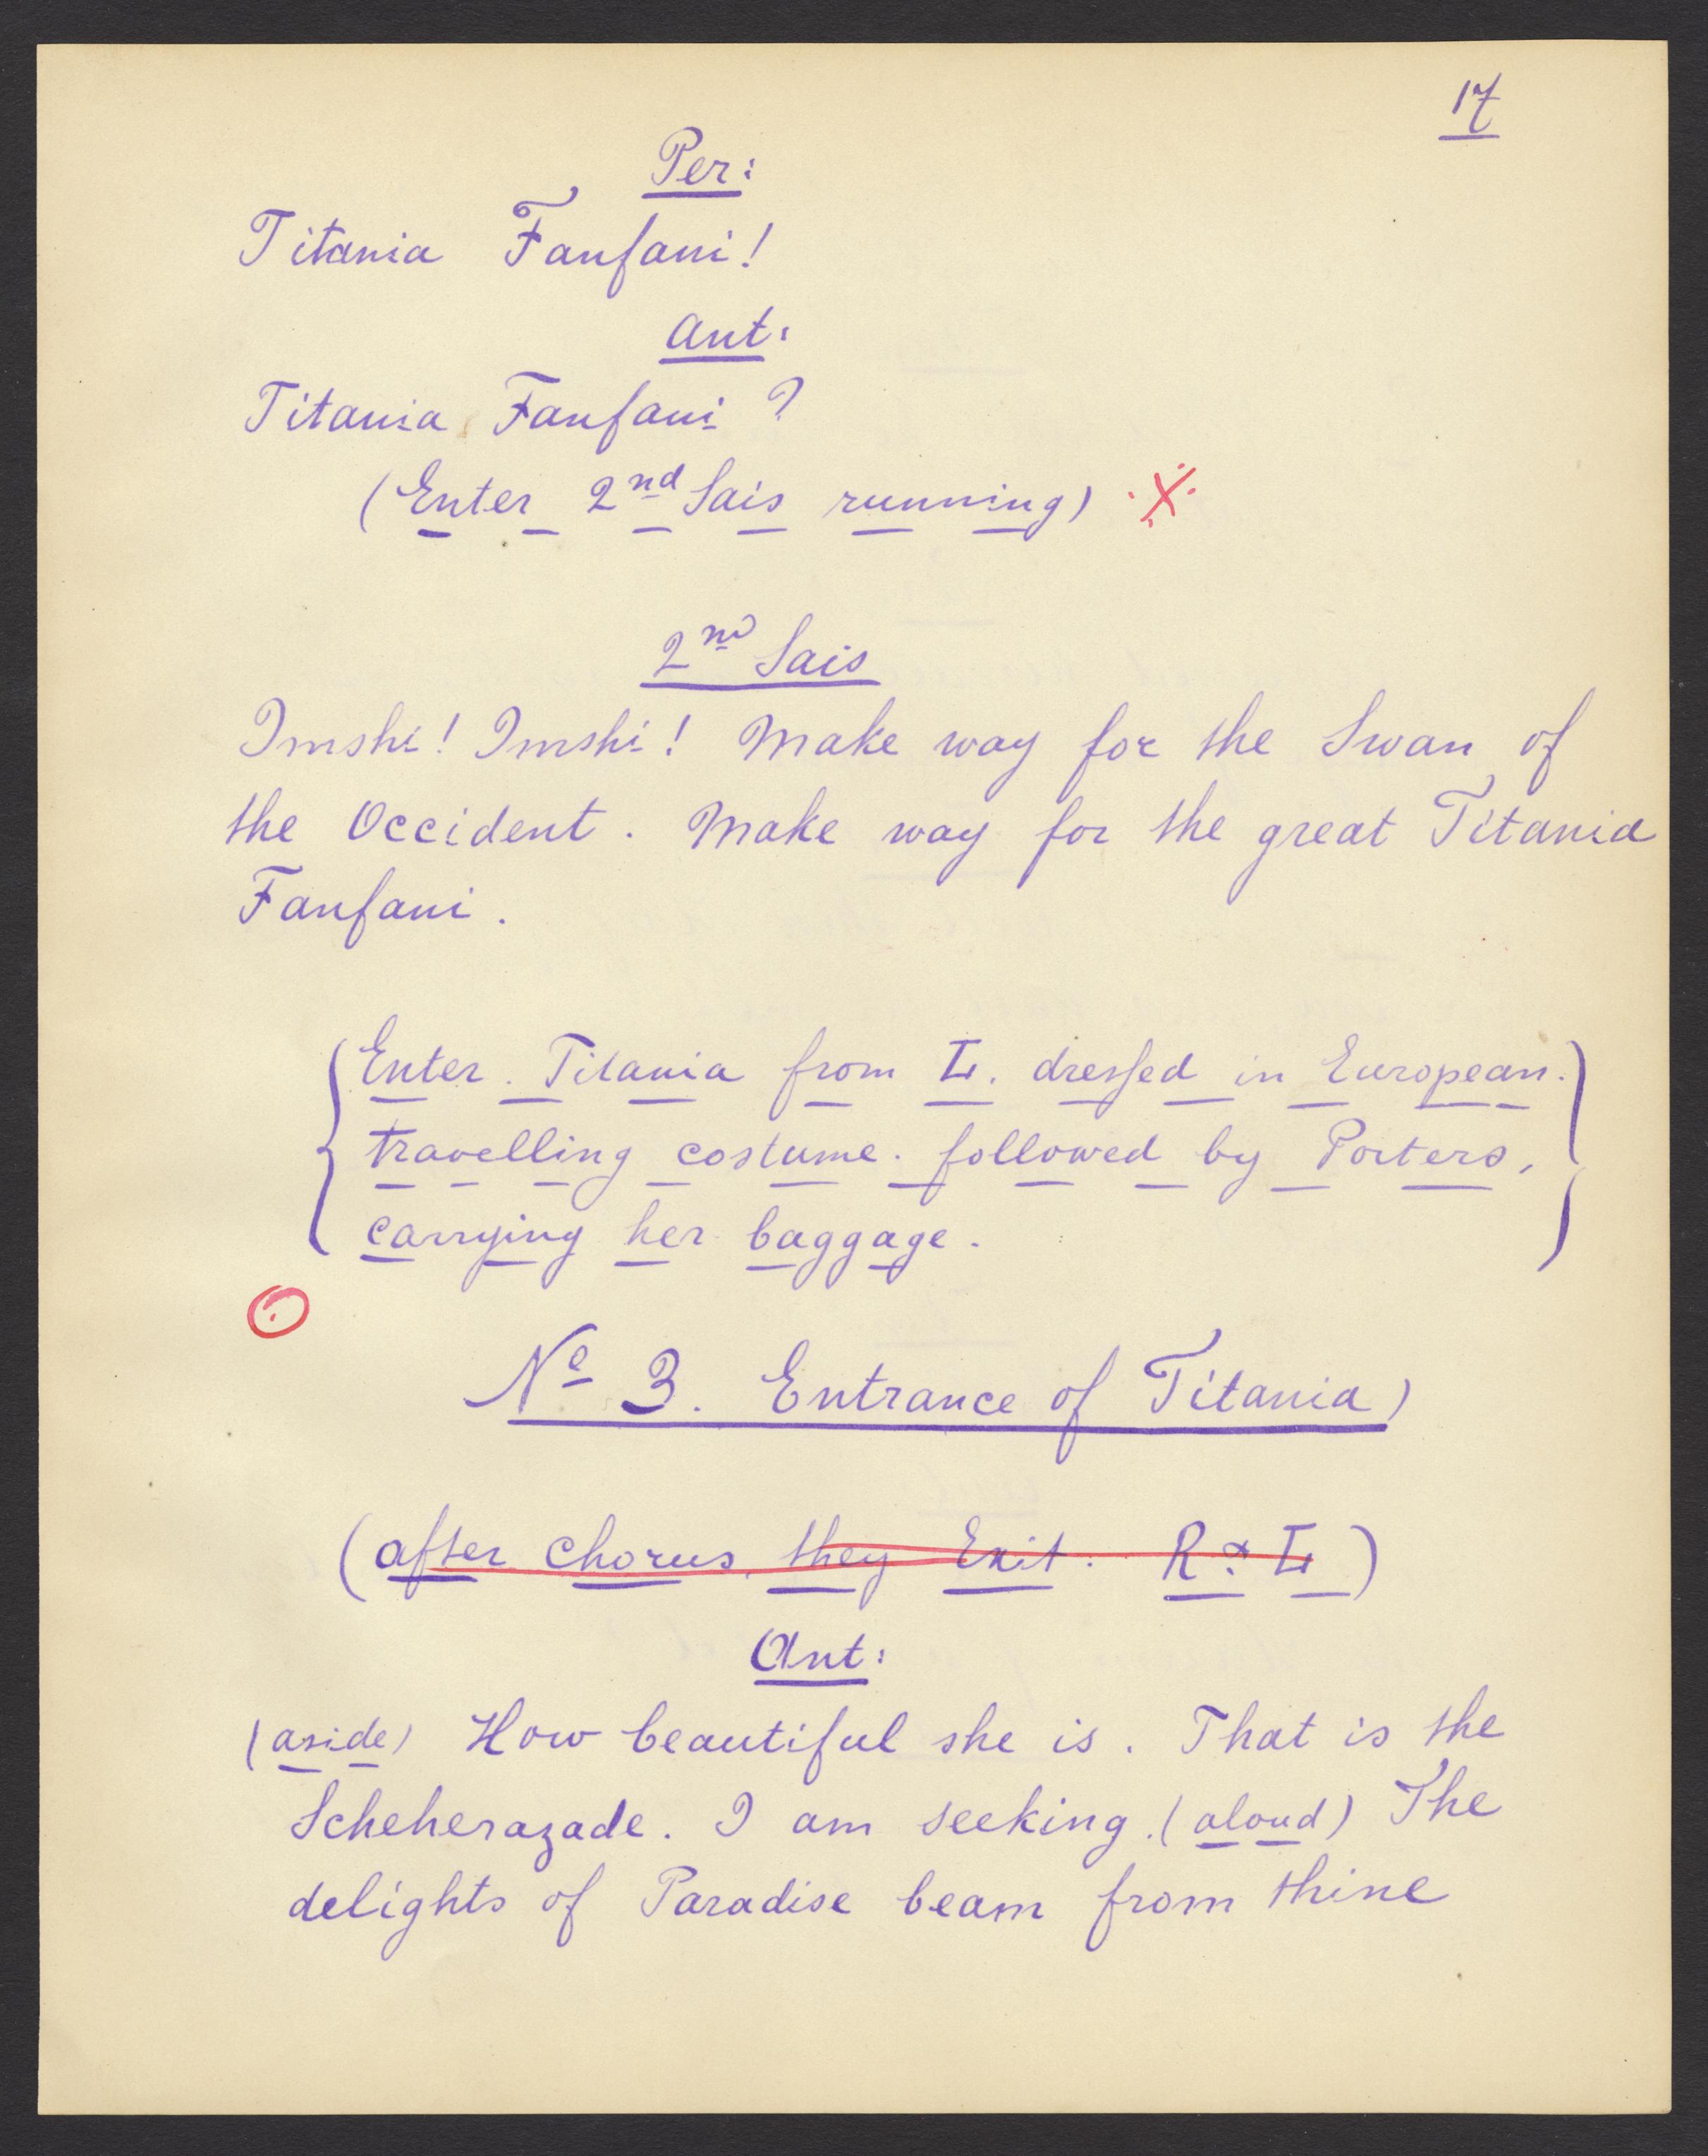 17
Per:
Titania Fanfani!
Ant:
Titania Fanfani?
(Enter 2nd Sais running)
2nd Sais
Imshi! Imshi! Make way for the Swan of
the Occident. Make way for the great Titania
Fanfani.
Enter. Titania from L. dressed in European.
travelling costume. followed by Porters,
carrying her baggage.
No 3. Entrance of Titania)
(after chorus, they Exit. R & L)
Ant:
(aside) How beautiful she is. That is the
Scheherazade. I am seeking. (aloud) The
delights of Paradise beam from thine